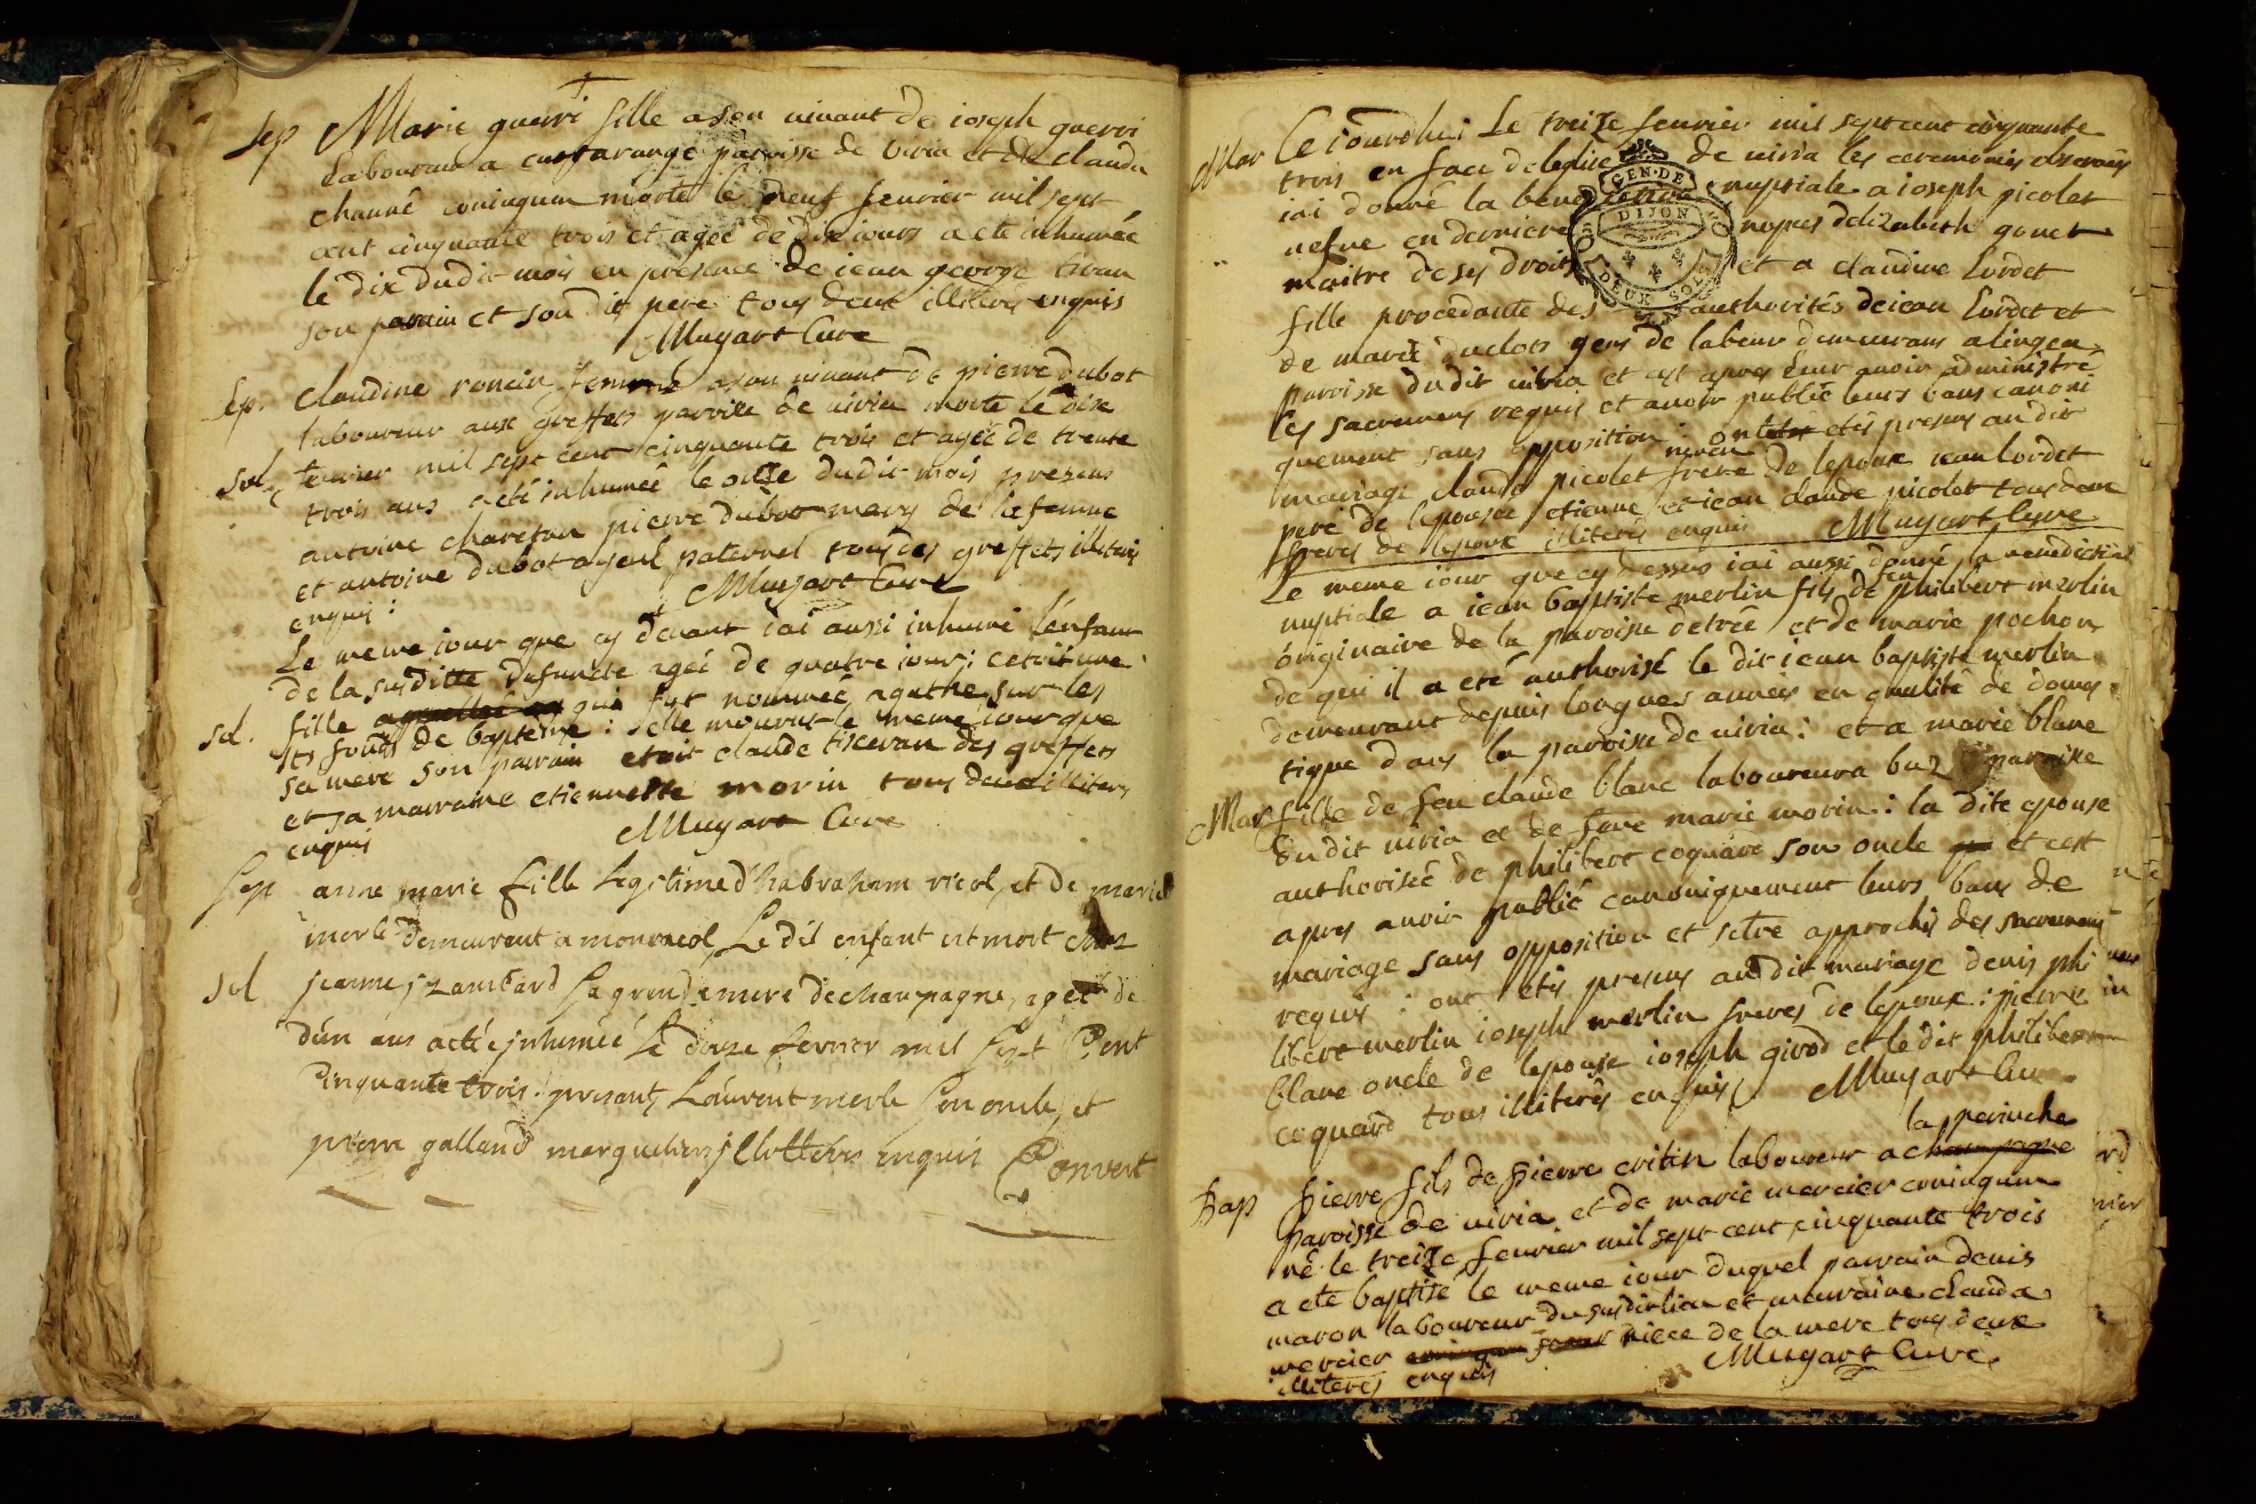 Sep Marie guerri fille a son vivant de ioseph guerri
laboureur a paroisse de viria et de claudu
channé coniugum morte le neuf fevrier mil sept
cent cinquante trois et agée de dix iours a eté inhumée
le dix dudit mois en presence de iean george tiran
son parain et son dit pere tous deux illiterés enquis
Muyart Curé
Sep. Claudine roncin femme a son vivant de pierre dubot
laboureur aux greffets parroisse de viria morte le dix
sol. fevrier mil sept cent cinquante trois et agée de trente
trois ans a eté inhumée le onze dudit mois presens
antoine chareton pierre dubot mary de la femme
et antoine dubot ayeul paternel tous des greffets illiterés
enquis :
Muyart Curé
Le meme iour que cy devant iai aussi inhumé l'enfant
de la susditte defuncte agée de quatre iours : cetoit une
sol. fille qui fut nommée agathe sur les
fonds de bapteme : elle mourut le meme iour que
sa mere son parrain etoit claude tisceran des greffets
et sa marraine etiennette morin tous deux illiterés
enquis
Muyart Curé
Sep anne marie fille legitime d'habraham vicol, et de marie
merle demeurant a monracol, Le dit enfant est mort chez
sol jeanne jzambard sa grende mere de champagne, agée de
dún ans a eté jnhumée le douze fevrier mil sept Cent
Cinquante trois. presants Laurent merle son oncle et
pierre galland marguelier jllotterés enquis Convert
Mar Ce iourdhui Le treize fevrier mil sept cent cinquante
trois en face de leglise de viria les ceremonies observées
iai donné la benediction nuptiale a ioseph picolet
vefue en dernieres nopces delizabeth gonet
GEN · DE
DIJON
DEUX SOLS
maitre de ses droits et a claudine lordet
fille procedante des authorités de iean lordet et
de marie duclos gens de labeur demeurans a lingea
paroisse du dit viria et cest apres leur avoir administré
les sacremens requis et avoir publié leurs bans canoni
quement sans opposition : ont etés presens au dit
neveu
mariage claude picolet frere de lepoux iean lordet
pere de lepouse etienne et iean claude picolet tous deux
freres de lepoux illiterés enquis Muyart Curé
Le meme iour que cy dessus iai aussi donné la benediction
feu
nuptiale a iean baptiste merlin fils de philibert merlin
originaire de la paroisse detrée et de marie pochon
de qui il a eté authorisé le dit iean baptiste merlin
demeurant depuis longues années en qualité de domes
tique dans la paroisse de viria : et a marie blanc
Mar fille de feu claude blanc laboureur a buz parroisse
du dit viria et de feue marie morin : la dite epouse
authorisée de philibert coquard son oncle et cest
apres avoir publié canoniquement leurs bans de
mariage sans opposition et setre approchés des sacremens
requis : ont etés presens au dit mariage denis phi
libert merlin ioseph merlin freres de lepoux : pierre
blanc oncle de lepouse ioseph girod et le dit philibert
coquard tous illiterés enquis Muyart Curé
la peruche
Bap Pierre fils de pierre critin laboureur a champagne
paroisse de viria et de marie mercier coniugum
né le treize fevrier mil sept cent cinquante trois
a eté baptisé le meme iour duquel parrain denis
maron laboureur du susdit lieu et marraine clauda
mercier niece de la mere tous deux
illiterés enquis Muyart Curé